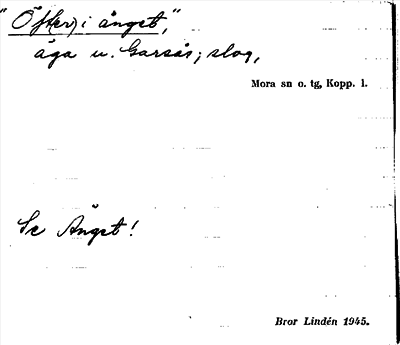 "Öf(ter) i ånget,"
äga u. Garsås; slog,
Mora sn o. tg, Kopp. l.
Se Ånget!
Bror Lindén 1945.